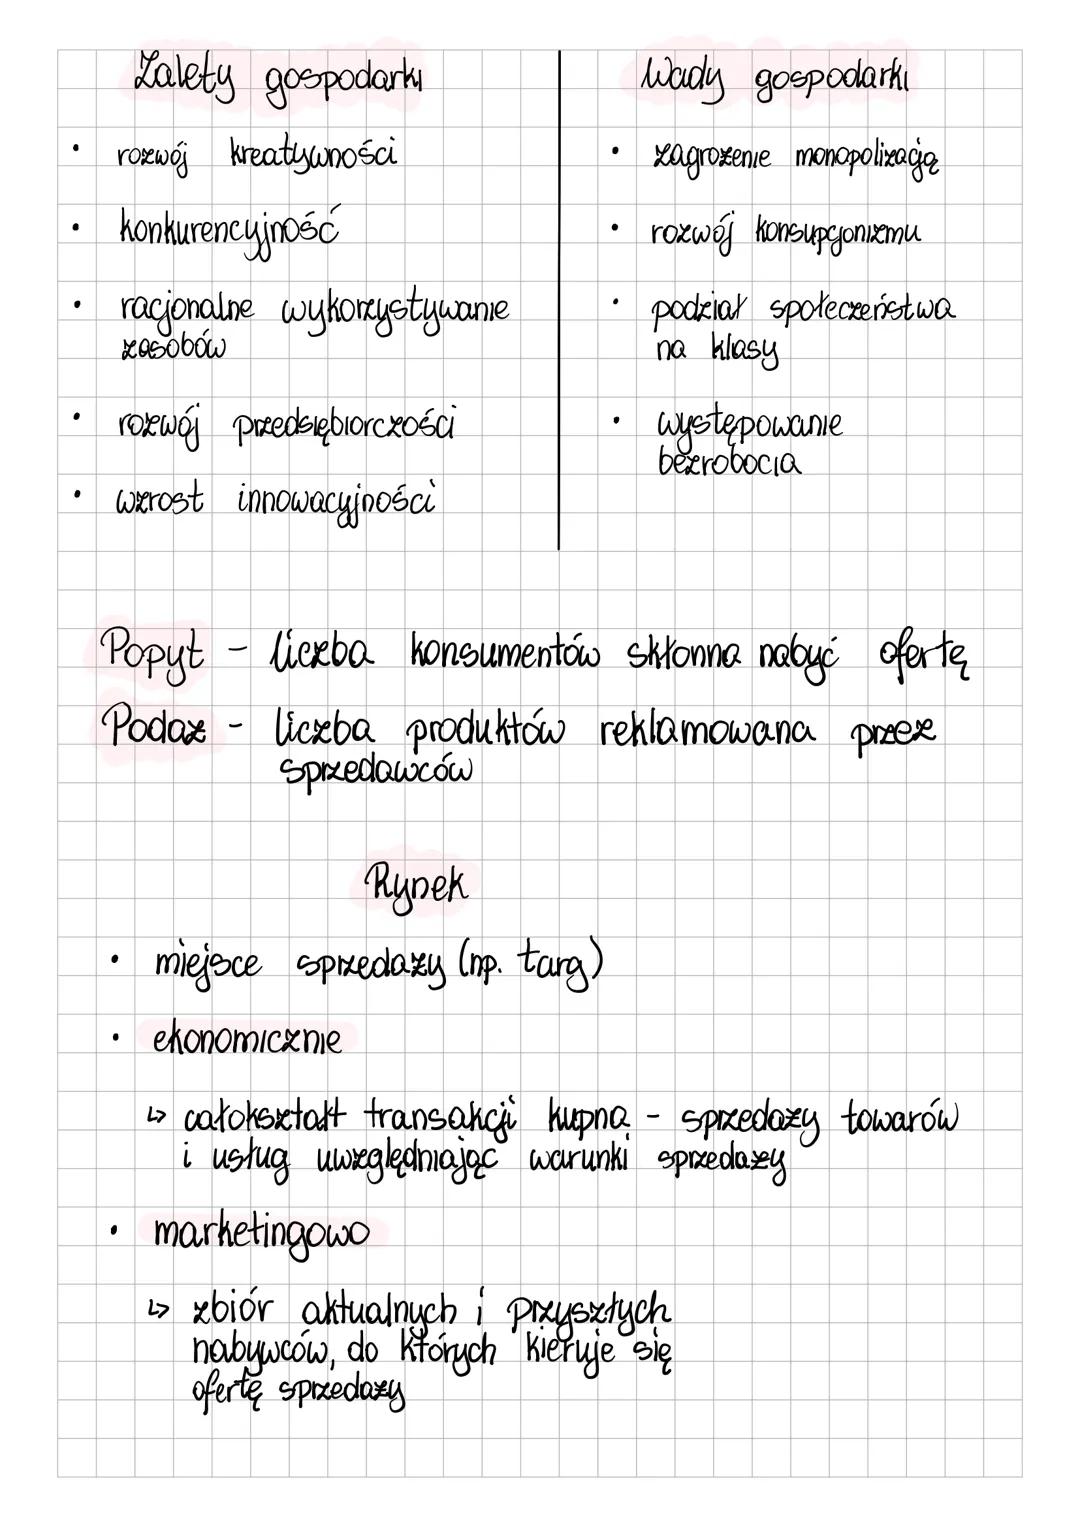 Zalety gospodarki
• rozwój kreatywności
• konkurencyjność
• racjonalne wykorzystywanie
zasobów
• rozwój przedsiębiorczości
• wzrost innowacyjności
Wady gospodarki
• zagrożenie monopolizacją
• rozwój konsupcjonizmu
• podział społeczeństwa
na klasy
• występowanie
bezrobocia
Popyt - liczba konsumentów skłonna nabyć ofertę
Podaż - liczba produktów reklamowana przez
sprzedawców
Rynek
• miejsce sprzedaży (np. targ)
• ekonomicznie
↳ całokształt transakcji kupna - sprzedaży towarów
i usług uwzględniając warunki sprzedaży
• marketingowo
↳ zbiór aktualnych i przyszłych
nabywców, do których kieruje się
ofertę sprzedaży